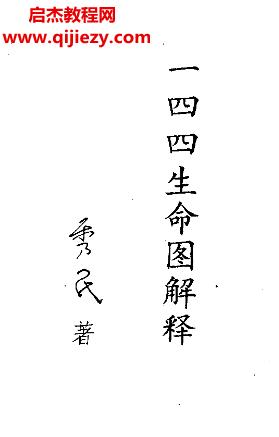 启杰教程网
www.qijiezy.com
一四四生命图解释
秀民著